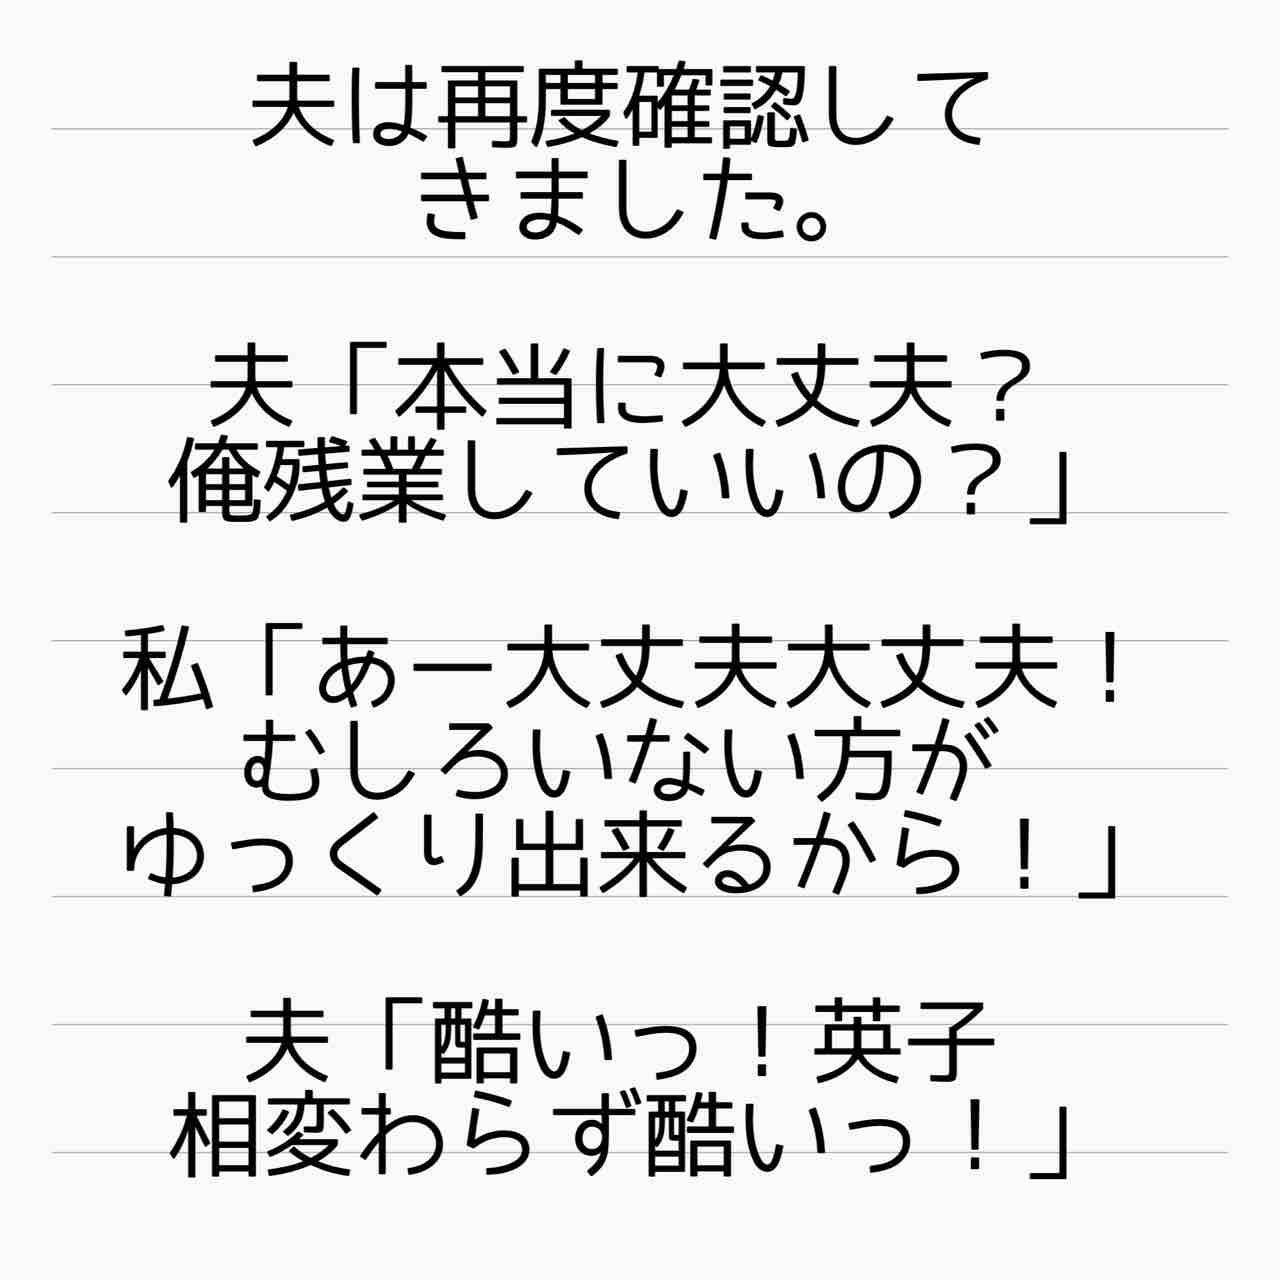 夫は再度確認して
きました。
夫「本当に大丈夫？
俺残業していいの？」
私「あー大丈夫大丈夫！
むしろいない方が
ゆっくり出来るから！」
夫「酷いっ！英子
相変わらず酷いっ！」